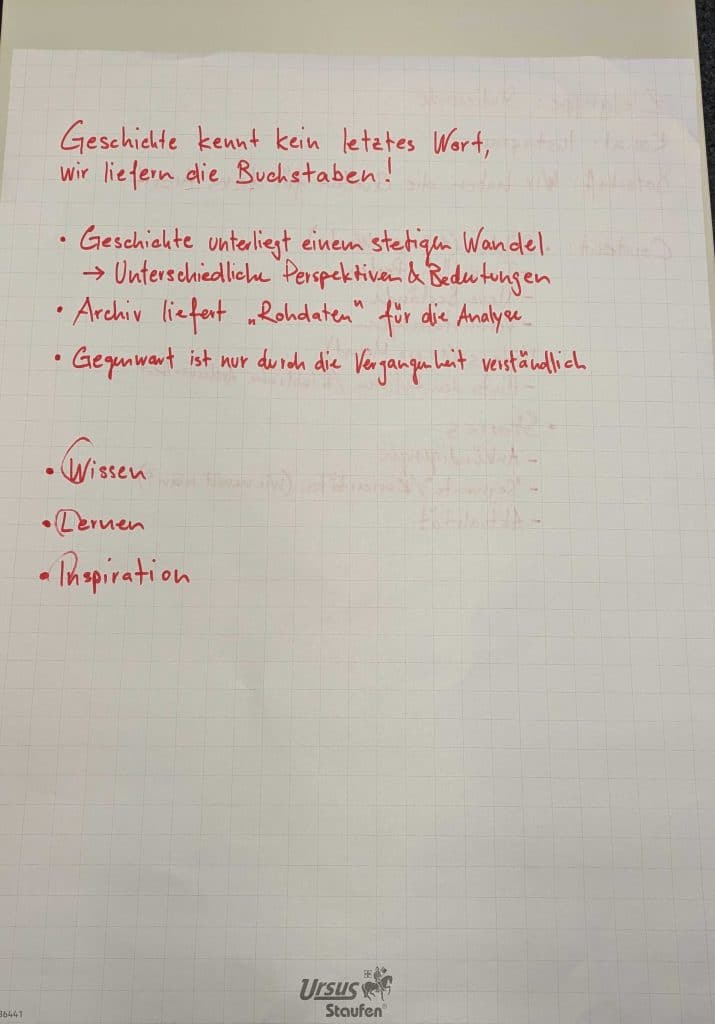 Geschichte kennt kein letztes Wort,
wir liefern die Buchstaben!
• Geschichte unterliegt einem stetigen Wandel
→ Unterschiedliche Perspektiven & Bedeutungen
• Archiv liefert „Rohdaten" für die Analyse
• Gegenwart ist nur durch die Vergangenheit verständlich
• Wissen
• Lernen
• Inspiration
Ursus
Staufen®
36441